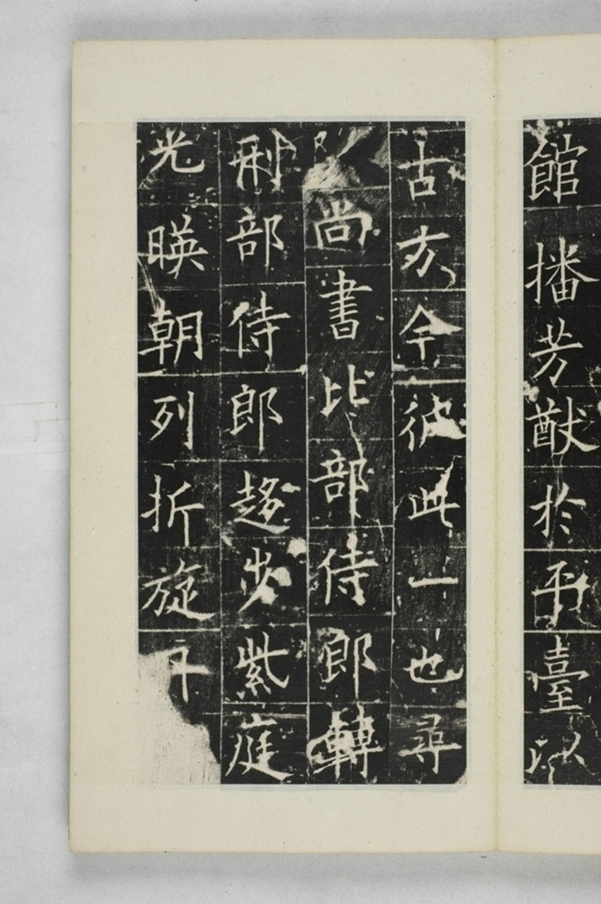 館播芳猷於平臺以
古方今彼此一也尋
尚書比部侍郎轉
刑部侍郎趍步紫庭
光暎朝列折旋